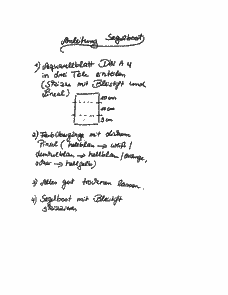 Anleitung Segelboot
1) Aquarellblatt Din A 4
in drei Teile einteilen
(Skizze mit Bleistift und
Lineal)
10 cm
10 cm
9 cm
2) Farbübergänge mit dickem
Pinsel (hellblau → weiß /
dunkelblau → hellblau / orange,
→ hellgelb)
3) Alles gut trocknen lassen.
4) Segelboot mit Bleistift
skizzieren